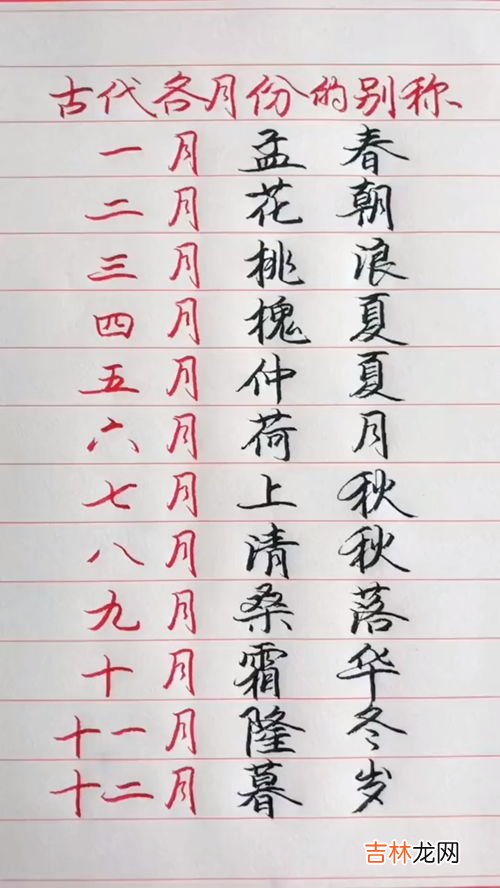 古代各月份的别称
一月 孟春
二月 花朝
三月 桃浪
四月 槐夏
五月 仲夏
六月 荷月
七月 上秋
八月 清秋
九月 桑落
十月 霜华
十一月 隆冬
十二月 暮岁
吉林龙网